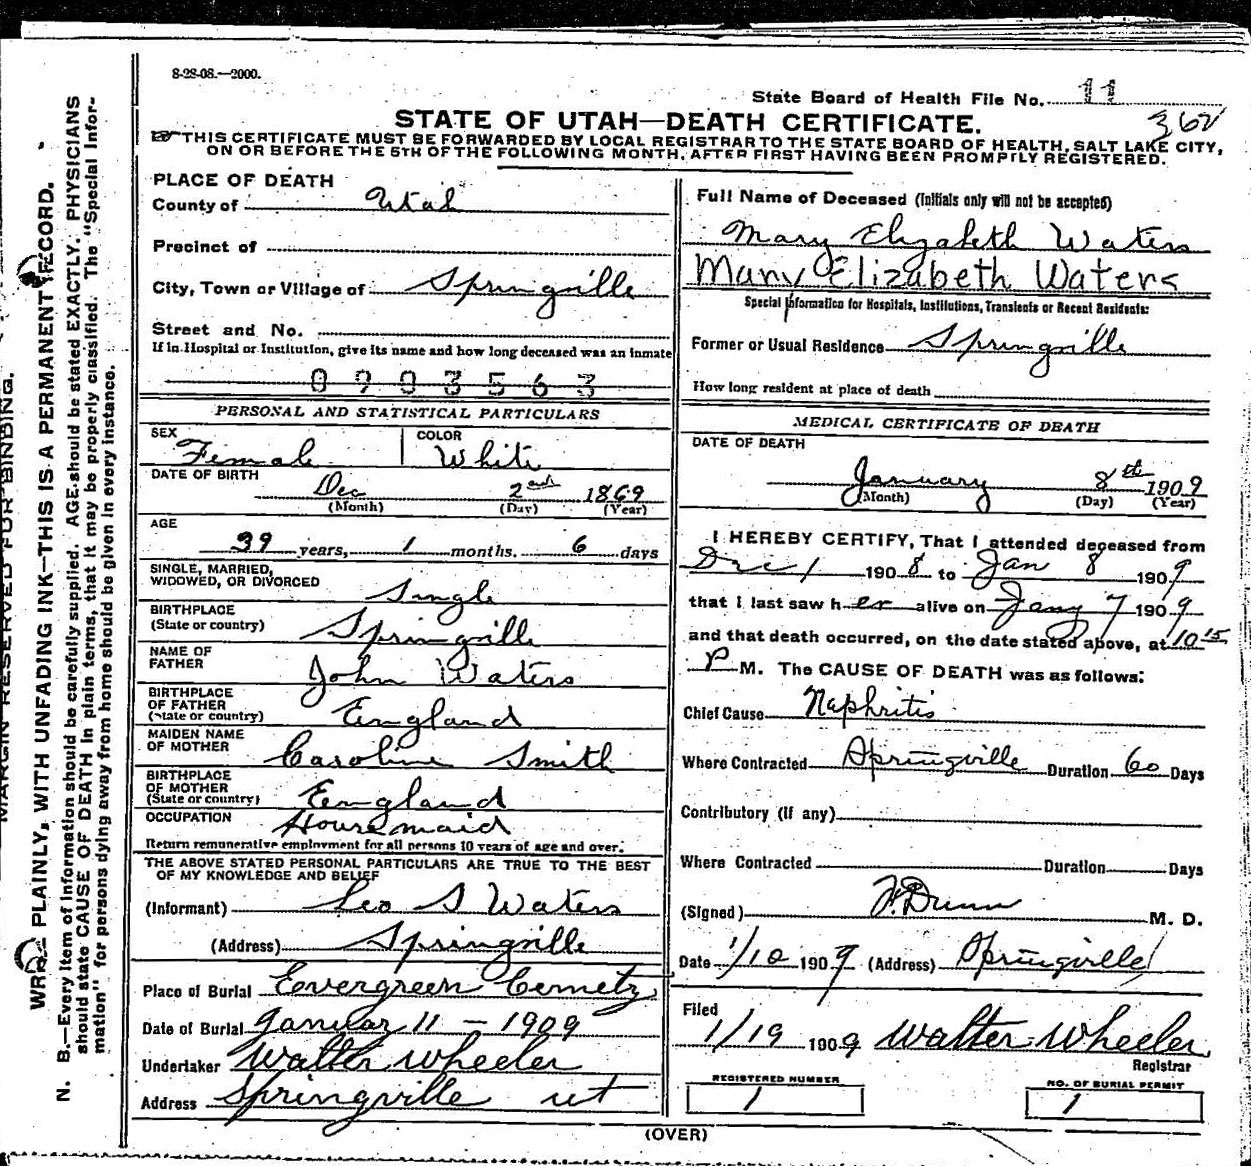 8-28-08.—2000.
State Board of Health File No. 11
362
STATE OF UTAH—DEATH CERTIFICATE.
THIS CERTIFICATE MUST BE FORWARDED BY LOCAL REGISTRAR TO THE STATE BOARD OF HEALTH, SALT LAKE CITY,
ON OR BEFORE THE 5TH OF THE FOLLOWING MONTH, AFTER FIRST HAVING BEEN PROMPTLY REGISTERED.
PLACE OF DEATH
County of Utah
Precinct of
City, Town or Village of Springville
Street and No.
If in Hospital or Institution, give its name and how long deceased was an inmate
0903563
PERSONAL AND STATISTICAL PARTICULARS
SEX Female COLOR White
DATE OF BIRTH Dec 2nd 1869
(Month) (Day) (Year)
AGE
39 years, 1 months. 6 days
SINGLE, MARRIED,
WIDOWED, OR DIVORCED Single
BIRTHPLACE
(State or country) Springville
NAME OF
FATHER John Waters
BIRTHPLACE
OF FATHER
(State or country) England
MAIDEN NAME
OF MOTHER Caroline Smith
BIRTHPLACE
OF MOTHER
(State or country) England
OCCUPATION House maid
Return remunerative employment for all persons 10 years of age and over.
THE ABOVE STATED PERSONAL PARTICULARS ARE TRUE TO THE BEST
OF MY KNOWLEDGE AND BELIEF
(Informant) Geo S Waters
(Address) Springville
Place of Burial Evergreen Cemetry
Date of Burial Januar 11 - 1909
Undertaker Walter Wheeler
Address Springville ut
Full Name of Deceased (Initials only will not be accepted)
Mary Elizabeth Waters
Mary Elizabeth Waters
Special Information for Hospitals, Institutions, Transients or Recent Residents:
Former or Usual Residence Springville
How long resident at place of death
MEDICAL CERTIFICATE OF DEATH
DATE OF DEATH
January 8th 1909
(Month) (Day) (Year)
I HEREBY CERTIFY, That I attended deceased from
Dec 1 1908 to Jan 8 1909
that I last saw her alive on Jany 7 1909
and that death occurred, on the date stated above, at 10 15
P M. The CAUSE OF DEATH was as follows:
Chief Cause Nephritis
Where Contracted Springville Duration 60 Days
Contributory (if any)
Where Contracted Duration Days
(Signed) F. Dunn M. D.
Date 1/10 1909 (Address) Springville
Filed
1/19 1909 Walter Wheeler
Registrar
REGISTERED NUMBER
1
NO. OF BURIAL PERMIT
1
(OVER)
MARGIN RESERVED FOR BINDING.
WRITE PLAINLY, WITH UNFADING INK—THIS IS A PERMANENT RECORD.
N. B.—Every item of information should be carefully supplied. AGE should be stated EXACTLY. PHYSICIANS
should state CAUSE OF DEATH in plain terms, that it may be properly classified. The "Special Infor-
mation" for persons dying away from home should be given in every instance.